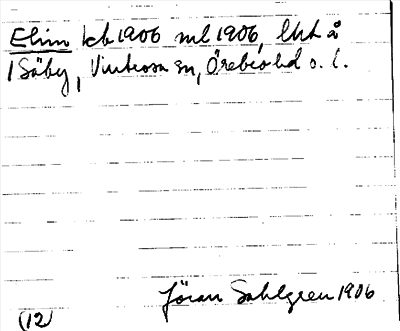 Elim kb 1906 ml 1906, lht å
1 Säby, Vintrosa sn, Örebro hd o. l.
Jöran Sahlgren 1906
(12)